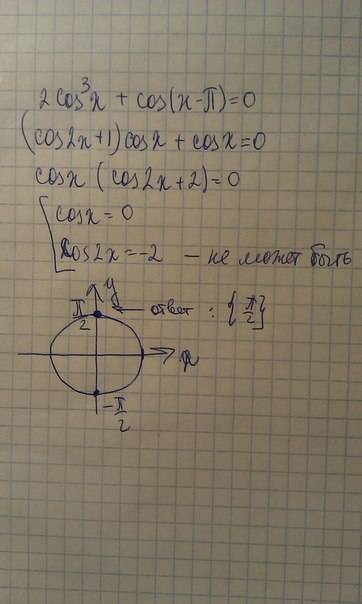 2cos³x + cos(x-π)=0
(cos2x+1)cosx + cosx=0
cosx (cos2x+2)=0
cosx = 0
cos2x=-2 - не может быть
π/2 y ответ : {π/2}
x
-π/2